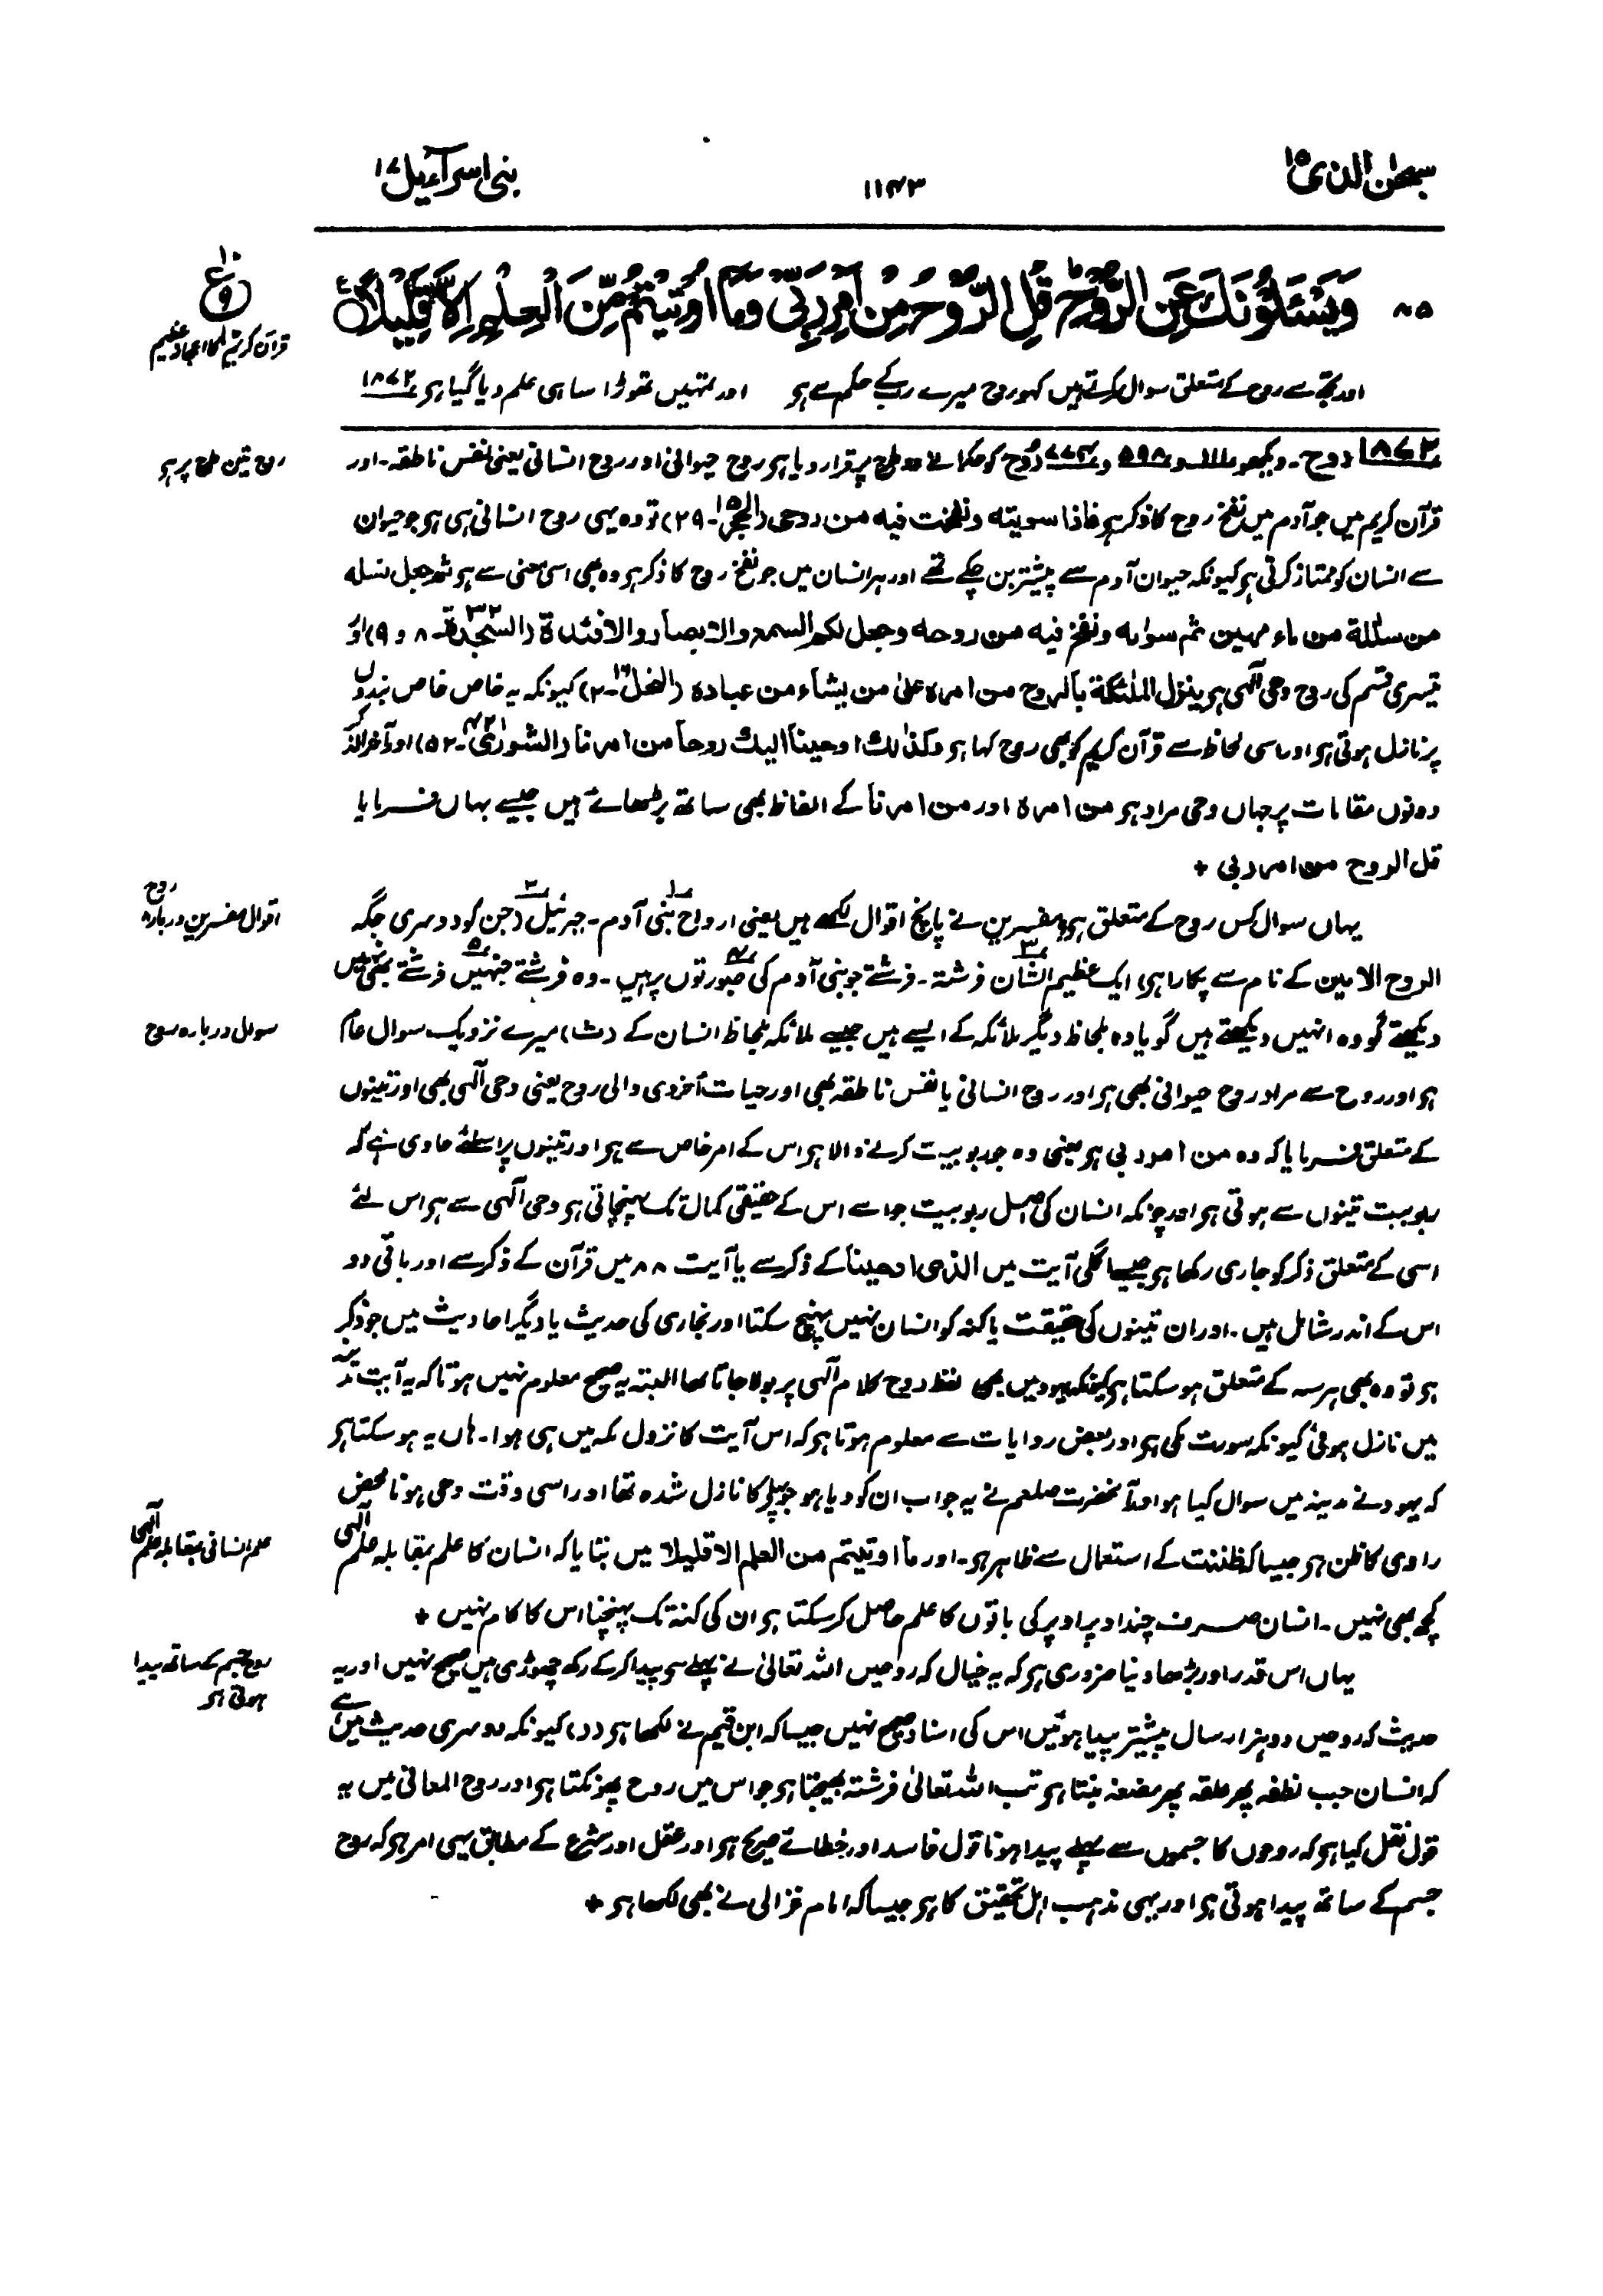 سبحٰن الذی ۱۵
۱۱۴۳
بنی اسرآءیل ۱۷
۸۵ وَيَسْئَلُوْنَكَ عَنِ الرُّوْحِ ؕ قُلِ الرُّوْحُ مِنْ اَمْرِ رَبِّيْ وَمَاۤ اُوْتِيْتُمْ مِّنَ الْعِلْمِ اِلَّا قَلِيْلًا
ع ۱۰ ۹
قرآن کریم کا اعجاز عظیم
اور تجھ سے روح کے متعلق سوال کرتے ہیں کہو روح میرے رب کے حکم سے ہو اور تمہیں تھوڑا سا ہی علم دیا گیا ہو ۱۸۷۲
۱۸۷۲ روح۔ دیکھو ۱۱۱ و ۵۹۸ و ۷۷۴ رُوح کو حکما نے دو طرح پر قرار دیا ہو روح حیوانی اور روح انسانی یعنی نفس ناطقہ۔ اور
روح تین طرح پر ہو
قرآن کریم میں جو آدم میں نفخ روح کا ذکر ہو فاذا سویته ونفخت فیه من روحی (الحجر ۱۵۔۲۹) تو وہ یہی روح انسانی ہی ہو جو حیوان
سے انسان کو ممتاز کرتی ہو کیونکہ حیوان آدم سے پیشتر بن چکے تھے اور ہر انسان میں جو نفخ روح کا ذکر ہو وہ بھی اسی معنی سے ہو ثم جعل نسله
من سللة من ماء مهین ثم سوٰىه ونفخ فیه من روحه وجعل لکم السمع والابصار والافئدة (السجدة ۳۲۔ ۸ و ۹) اور
تیسری قسم کی روح وحی آلٰہی ہو ینزل الملئکة بالروح من امره علیٰ من یشاء من عباده (النحل ۱۶۔۲) کیونکہ یہ خاص خاص بندوں
پر نازل ہوتی ہو اور اسی لحاظ سے قرآن کریم کو بھی روح کہا ہو وکذٰلك اوحینا الیك روحا من امرنا (الشوریٰ ۴۲۔۵۲) اور آخر الذکر
دونوں مقامات پر جہاں وحی مراد ہو من امره اور من امرنا کے الفاظ بھی ساتھ بڑھائے ہیں جیسے یہاں فرمایا
قل الروح من امر ربی +
یہاں سوال کس روح کے متعلق ہو؟ مفسرین نے پانچ اقوال لکھے ہیں یعنی ارواح بنی آدم ۱۔ جبرئیل ۲ (جن کو دوسری جگہ
اقوال مفسرین دربارہ روح
الروح الامین کے نام سے پکارا ہو) ایک عظیم الشان فرشتہ ۳۔ فرشتے جو بنی آدم کی صورتوں پر ہیں ۴۔ وہ فرشتے جنہیں ۵ فرشتے بھی نہیں
دیکھتے گو وہ انہیں دیکھتے ہیں گویا وہ بلحاظ دیگر ملائکہ کے ایسے ہیں جیسے ملائکہ بلحاظ انسان کے (ث) میرے نزدیک سوال عام
سوال دربارہ روح
ہو اور روح سے مراد روح حیوانی بھی ہو اور روح انسانی یا نفس ناطقہ بھی اور حیات اُخروی والی روح یعنی وحی آلٰہی بھی اور تینوں
کے متعلق فرمایا کہ وہ من امر ربی ہو یعنی وہ جو ربوبیت کرنے والا ہو اس کے امر خاص سے ہو اور تینوں پر اسلئے حاوی ہے کہ
ربوبیت تینوں سے ہوتی ہو اور چونکہ انسان کی اصل ربوبیت جو اسے اس کے حقیقی کمال تک پہنچاتی ہو وحی آلٰہی سے ہو اس لئے
اسی کے متعلق ذکر کو جاری رکھا ہو جیسے اگلی آیت میں الذی اوحینا کے ذکر سے یا آیت ۸۸ میں قرآن کے ذکر سے اور باقی دو
اس کے اندر شامل ہیں۔ اور ان تینوں کی حقیقت یا کنہ کو انسان نہیں پہنچ سکتا اور بخاری کی حدیث یا دیگر احادیث میں جو ذکر
ہو تو وہ بھی ہر سہ کے متعلق ہو سکتا ہو کیونکہ یہود میں بھی لفظ روح کلام آلٰہی پر بولا جاتا تھا البتہ یہ صحیح معلوم نہیں ہوتا کہ یہ آیت مدینہ
میں نازل ہوئی کیونکہ سورت مکی ہو اور بعض روایات سے معلوم ہوتا ہو کہ اس آیت کا نزول مکہ میں ہی ہوا۔ ہاں یہ ہو سکتا ہو
کہ یہود نے مدینہ میں سوال کیا ہو اور آنحضرت صلعم نے یہ جواب ان کو دیا ہو جو پہلے کا نازل شدہ تھا اور اسی وقت وحی ہونا محض
راوی کا ظن ہو جیسا کہ ظننت کے استعمال سے ظاہر ہو۔ اور ما اوتیتم من العلم الا قلیلا میں بتایا کہ انسان کا علم بمقابلہ علم آلٰہی
علم انسانی بمقابلہ علم آلٰہی
کچھ بھی نہیں۔ انسان صرف چند اوپر اوپر کی باتوں کا علم حاصل کر سکتا ہو ان کی کنہ تک پہنچنا اس کا کام نہیں +
یہاں اس قدر اور بڑھا دینا ضروری ہو کہ یہ خیال کہ روحیں اللہ تعالیٰ نے پہلے سے پیدا کر کے رکھ چھوڑی ہیں صحیح نہیں اور یہ
روح جسم کے ساتھ پیدا ہوتی ہو
حدیث کہ روحیں دو ہزار سال پیشتر پیدا ہوئیں اس کی اسناد صحیح نہیں جیسا کہ ابن قیم نے لکھا ہو (د) کیونکہ دوسری حدیث میں ہے
کہ انسان جب نطفہ پھر علقہ پھر مضغہ بنتا ہو تب اللہ تعالیٰ فرشتہ بھیجتا ہو جو اس میں روح پھونکتا ہو اور روح المعانی میں یہ
قول نقل کیا ہو کہ روحوں کا جسموں سے پہلے پیدا ہونا قول فاسد اور خطائے صریح ہو اور عقل اور شرع کے مطابق یہی امر ہو کہ روح
جسم کے ساتھ پیدا ہوتی ہو اور یہی مذہب اہل تحقیق کا ہو جیسا کہ امام غزالی نے بھی لکھا ہو +